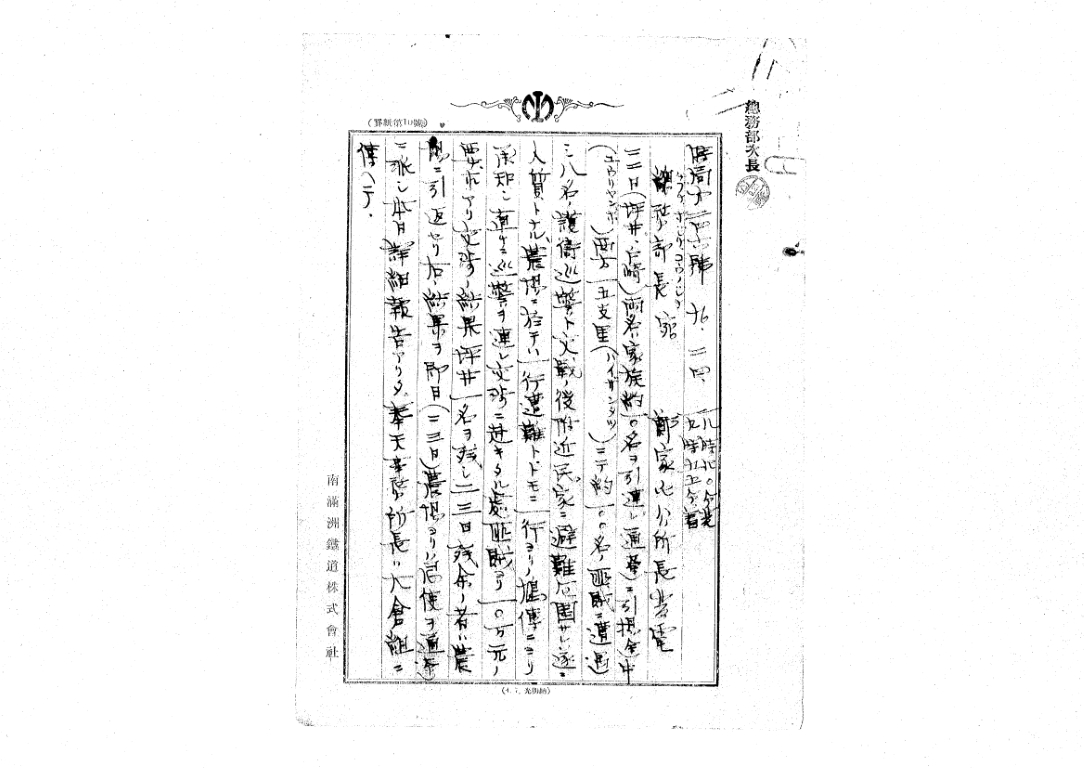 總務部次長
(罫紙第10號)
時局第一四六號 九、二四、八時九〇分発
九時九五分着
總務部長宛 鄭家屯公所長発電
二二日(坪井、戸崎)両名家族約一〇名ヲ引連レ通遼ニ引揚途中
()西方一五支里()ニテ約一〇〇名ノ匪賊ニ遭遇
シ八名ノ護衛巡警ト交戦ノ後附近民家ニ避難包囲サレ遂ニ
人質トナル、農場ニ於テハ一行遭難トトモニ一行ヨリノ鳩傳ニヨリ
承知シ直チニ巡警ヲ連レ交渉ニ赴キタル處匪賊ヨリ一〇万元ノ
要求アリ交渉ノ結果坪井一名ヲ残シ二三日残余ノ者ハ農
場ニ引返セリ右結果ヲ即日(二三日)農場ヨリハ急使ヲ通遼
ニ派シ本日詳細報告アリタ。奉天事務所長ハ大倉組ニ
傳ヘテ、
南滿洲鐵道株式會社